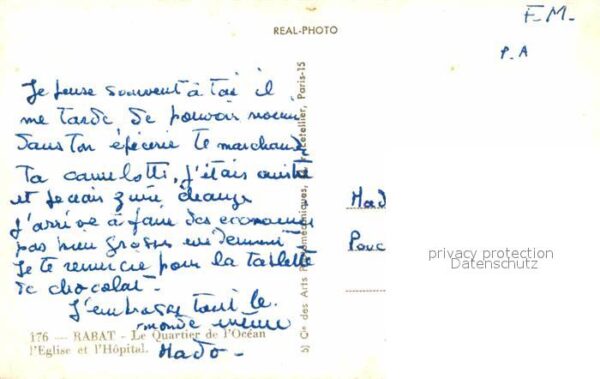 REAL-PHOTO
F.M.
P.A
Je pense souvent à toi il
me tarde de pouvoir
dans ton épicerie te marchander
ta camelotte, j'étais
et je
j'arrive à faire des économies
pas bien grosses évidemment
Je te remercie pour la tablette
de chocolat.
J'embrasse tout le
monde
Mado -
176 — RABAT - Le Quartier de l'Océan
l'Eglise et l'Hôpital.
Cie des Arts Photomécaniques, Paris-15
Mad
Pouc
privacy protection
Datenschutz